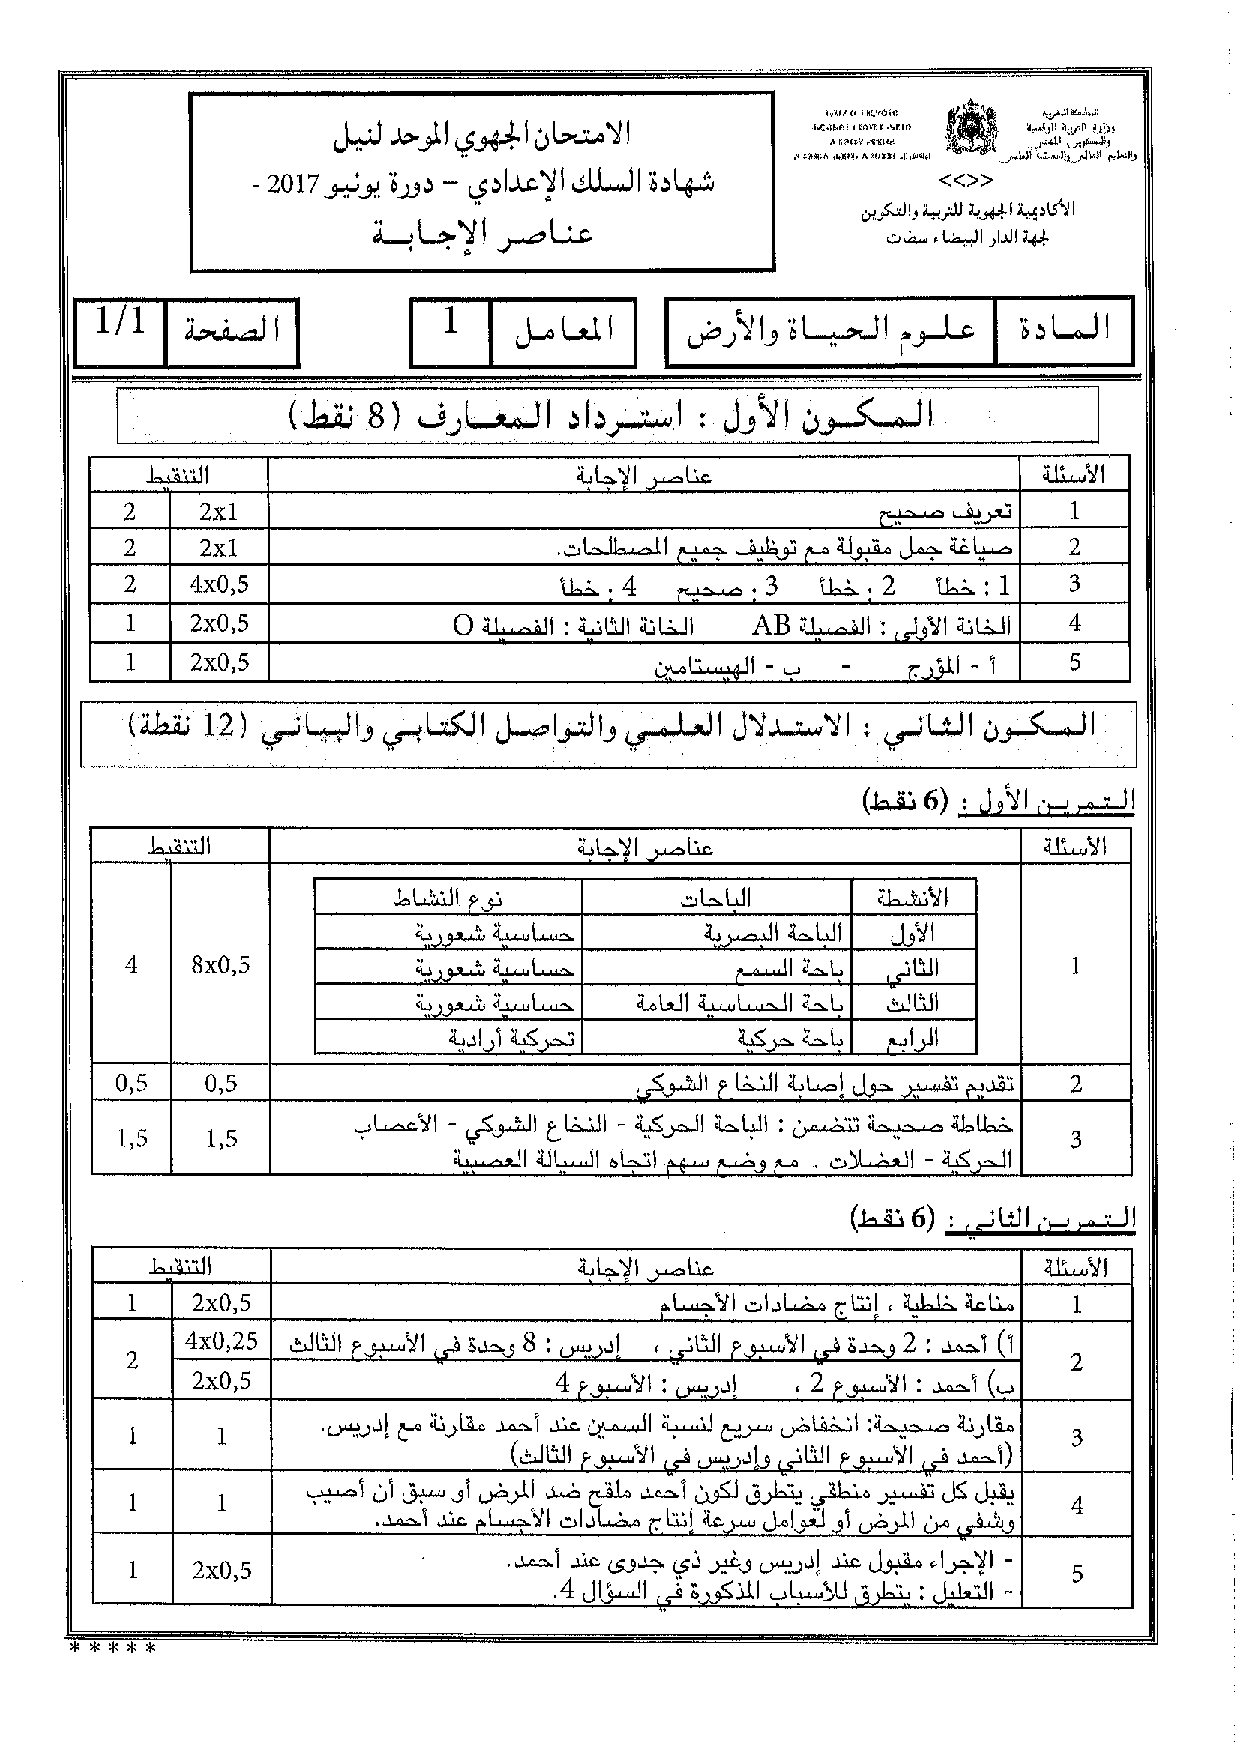 المملكة المغربية
وزارة التربية الوطنية
والتكوين المهني
والتعليم العالي والبحث العلمي
<<>>
الأكاديمية الجهوية للتربية والتكوين
لجهة الدار البيضاء سطات
الامتحان الجهوي الموحد لنيل
شهادة السلك الإعدادي – دورة يونيو 2017 -
عناصر الإجابة
المادة علوم الحياة والأرض المعامل 1 الصفحة 1/1
المكون الأول : استرداد المعارف (8 نقط)
الأسئلة عناصر الإجابة التنقيط
1 تعريف صحيح 2x1 2
2 صياغة جمل مقبولة مع توظيف جميع المصطلحات. 2x1 2
3 1 : خطأ 2 : خطأ 3 : صحيح 4 : خطأ 4x0,5 2
4 الخانة الأولى : الفصيلة AB الخانة الثانية : الفصيلة O 2x0,5 1
5 أ - المؤرج - ب - الهيستامين 2x0,5 1
المكون الثاني : الاستدلال العلمي والتواصل الكتابي والبياني (12 نقطة)
التمرين الأول : (6 نقط)
الأسئلة عناصر الإجابة التنقيط
الأنشطة الباحات نوع النشاط
الأول الباحة البصرية حساسية شعورية
1 الثاني باحة السمع حساسية شعورية 8x0,5 4
الثالث باحة الحساسية العامة حساسية شعورية
الرابع باحة حركية تحركية أرادية
2 تقديم تفسير حول إصابة النخاع الشوكي 0,5 0,5
3 خطاطة صحيحة تتضمن : الباحة الحركية - النخاع الشوكي - الأعصاب 1,5 1,5
الحركية - العضلات . مع وضع سهم اتجاه السيالة العصبية
التمرين الثاني : (6 نقط)
الأسئلة عناصر الإجابة التنقيط
1 مناعة خلطية ، إنتاج مضادات الأجسام 2x0,5 1
2 أ) أحمد : 2 وحدة في الأسبوع الثاني ، إدريس : 8 وحدة في الأسبوع الثالث 4x0,25 2
ب) أحمد : الأسبوع 2 ، إدريس : الأسبوع 4 2x0,5
3 مقارنة صحيحة: انخفاض سريع لنسبة السمين عند أحمد مقارنة مع إدريس. 1 1
(أحمد في الأسبوع الثاني وإدريس في الأسبوع الثالث)
4 يقبل كل تفسير منطقي يتطرق لكون أحمد ملقح ضد المرض أو سبق أن أصيب 1 1
وشفي من المرض أو لعوامل سرعة إنتاج مضادات الأجسام عند أحمد.
5 - الإجراء مقبول عند إدريس وغير ذي جدوى عند أحمد. 2x0,5 1
- التعليل : يتطرق للأسباب المذكورة في السؤال 4.
* * * * *